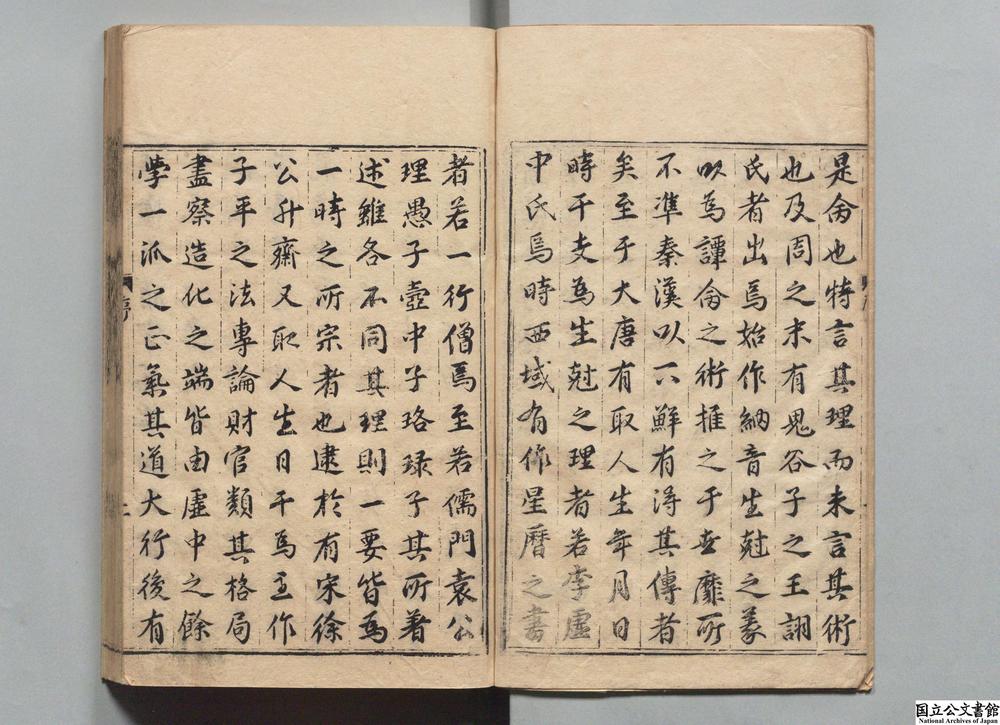 是侖也特言其理而未言其術
也及周之末有鬼谷子之王詡
氏者出焉始作納音生尅之義
以為譚侖之術推之于世靡所
不準秦漢以下鮮有淂其傳者
矣至于大唐有取人生年月日
時干支為生尅之理者若李虛
中氏焉時西域有作星曆之書
者若一行僧焉至若儒門袁公
理愚子壺中子珞琭子其所著
述雖各不同其理則一要皆為
一時之所宗者也逮於有宋徐
公升齋又取人生日干為主作
子平之法專論財官類其格局
盡察造化之端皆由虛中之餘
學一派之正氣其道大行後有
序
二
国立公文書館
National Archives of Japan